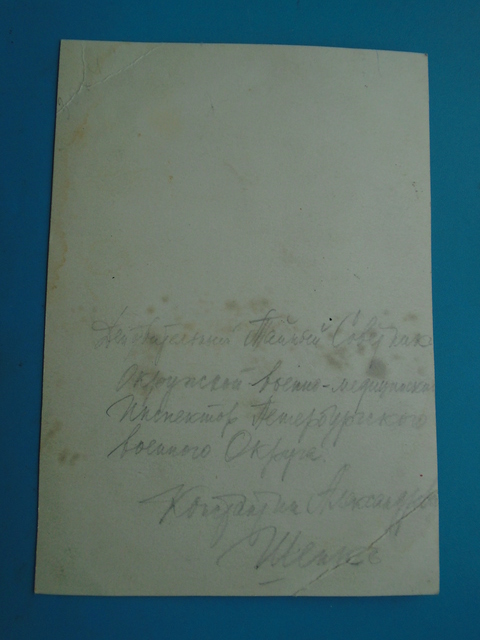 Действительный Тайный Советник
Окружной военно-медицинский
Инспектор Петербургского
военного Округа.
Константин Александрович